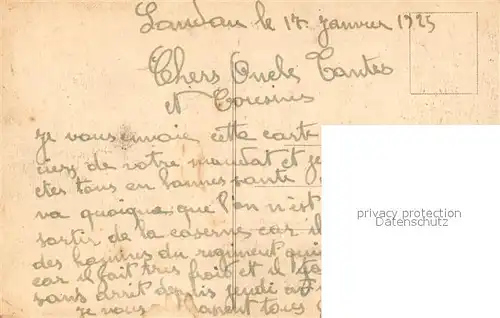 Landau le 17 janvier 1925
Chers Oncles Tantes
et Cousins
je vous envoie cette carte
ciez de votre mandat et je
êtes tous en bonnes santé
va quoique que l'on n'est
sortir de la caserne car il
des du regiment
car il fait très froid et il
sans arrêt depuis jeudi
je vous tous
privacy protection
www.ansichtskartenversand.com